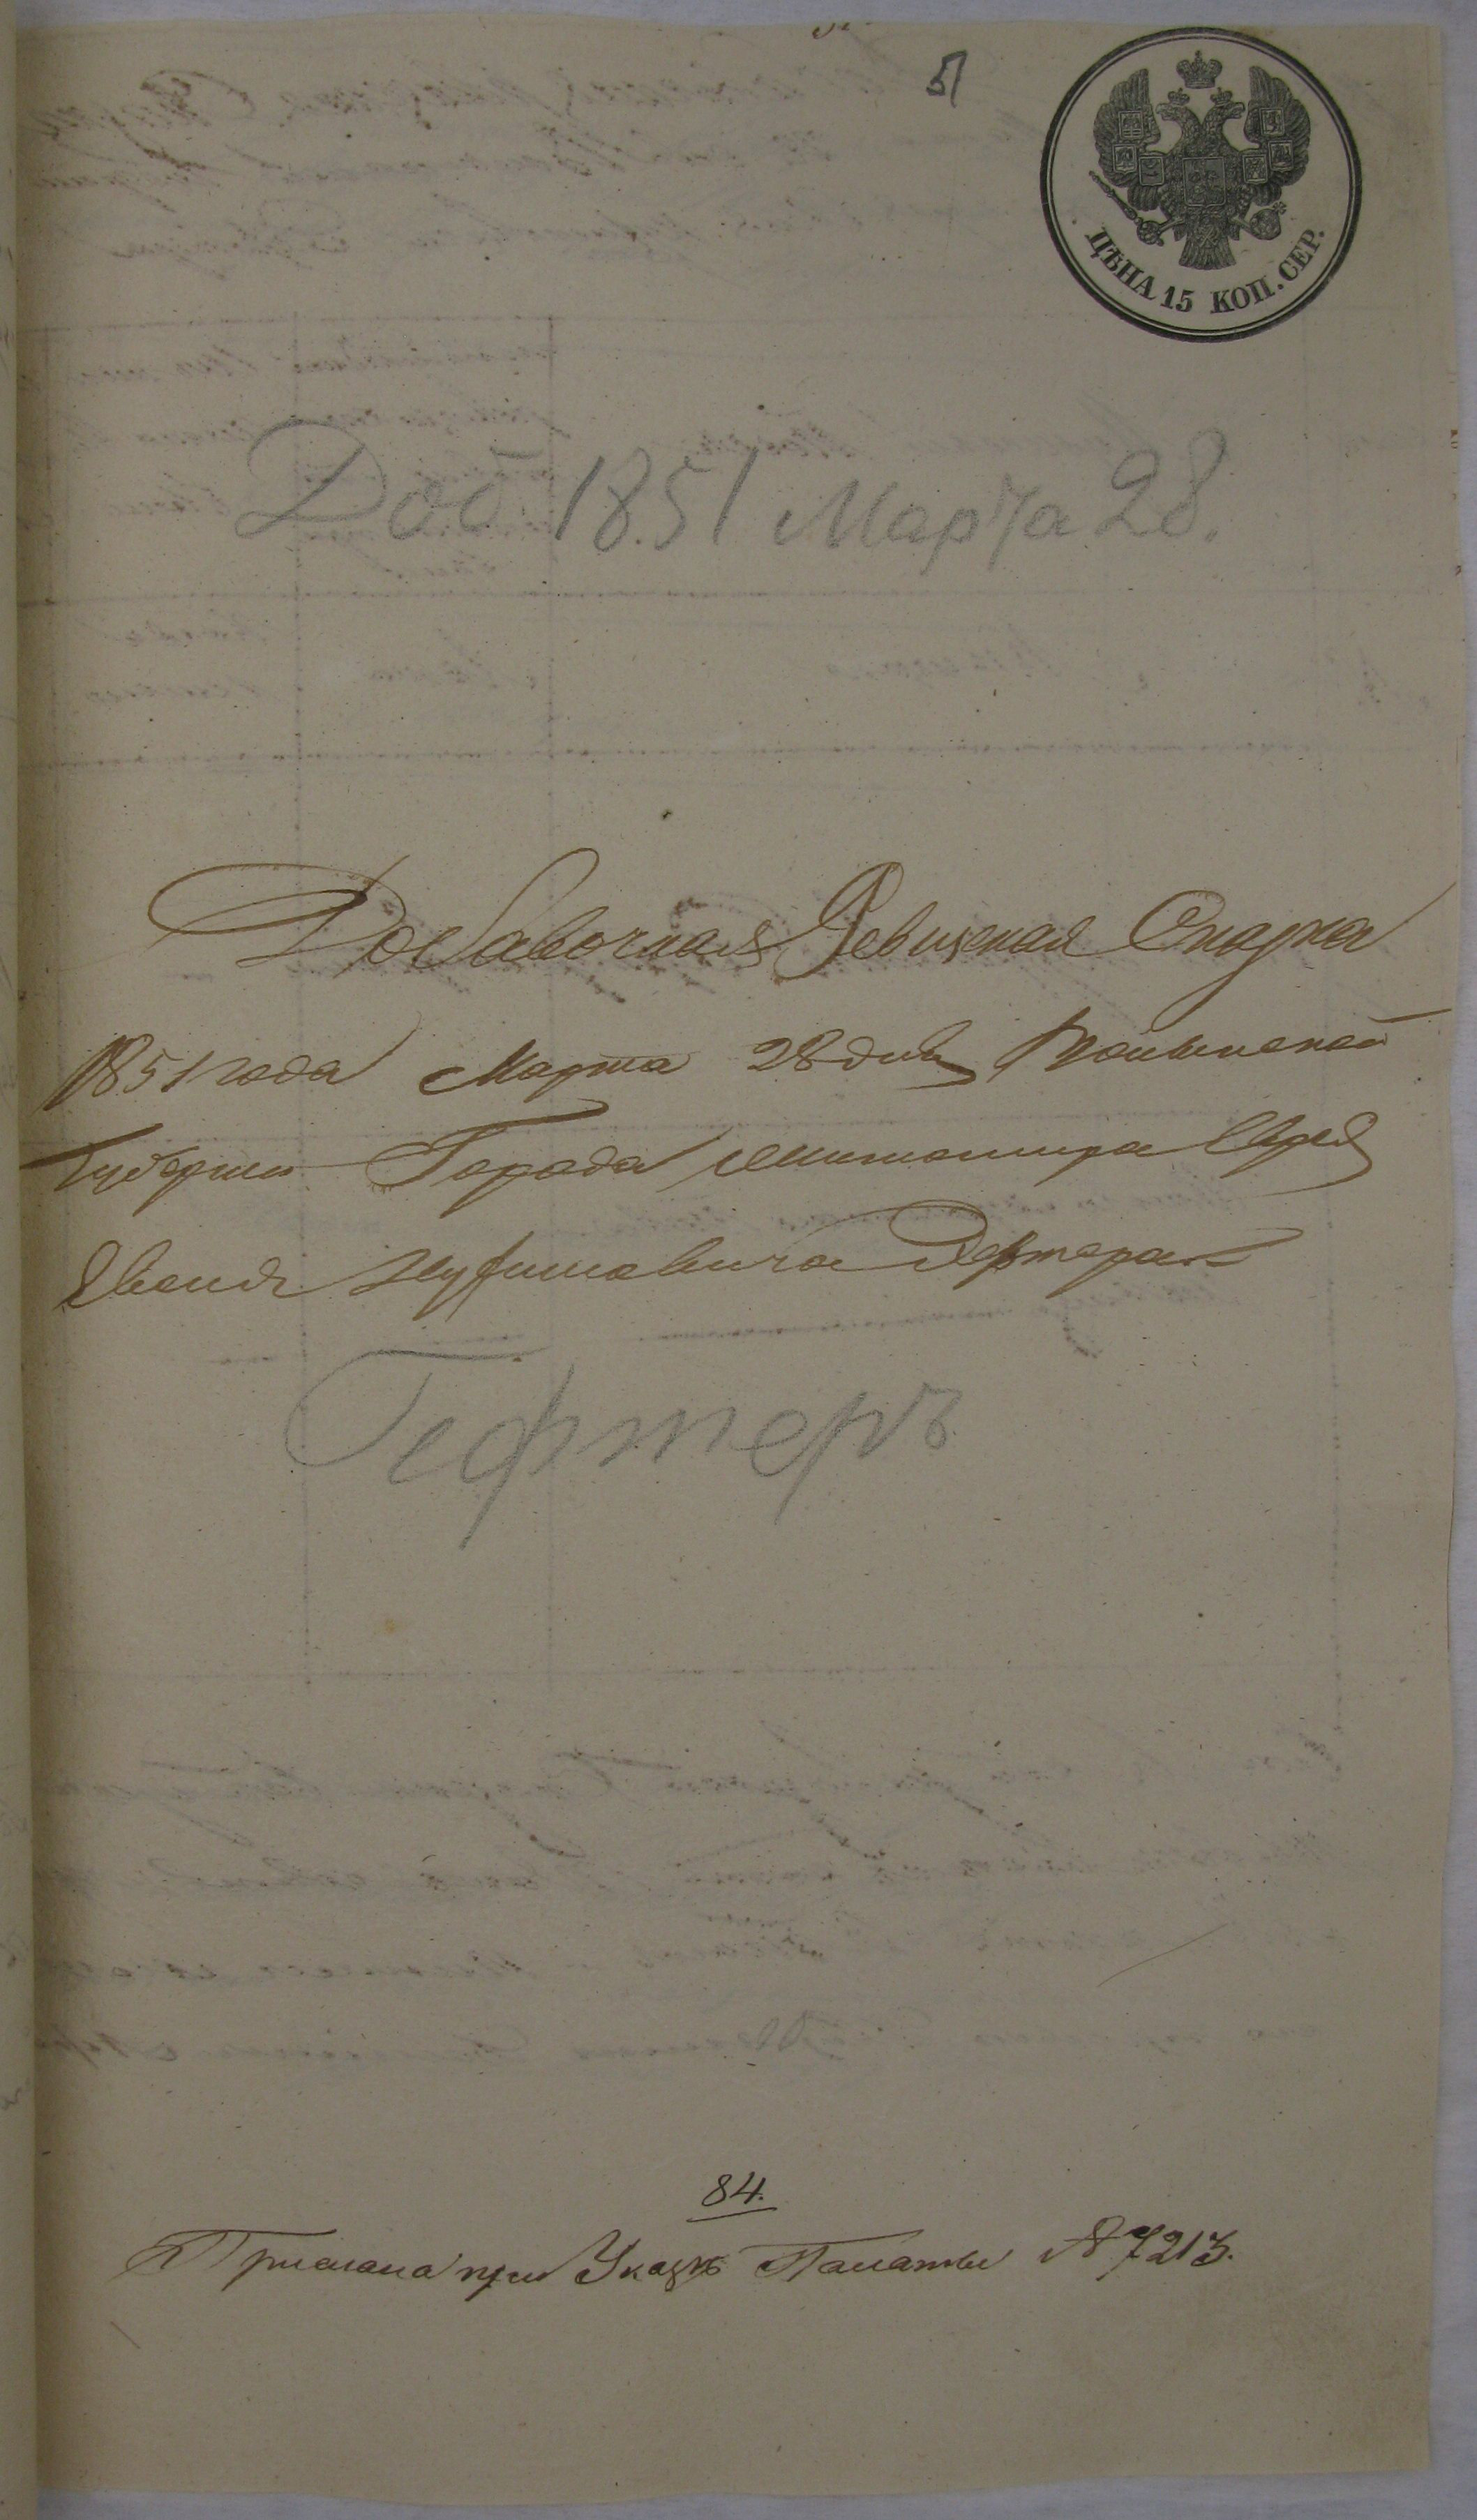 51
ЦѢНА 15 КОП. СЕР.
Доб 1851 Марта 28.
Добавочная Ревизская Сказка
1851 года Марта 28 дня Волынской
Губернии Города Житомира Еврея
Гефтера
Гефтеръ
84.
Прислана при Указѣ Палаты № 7213.